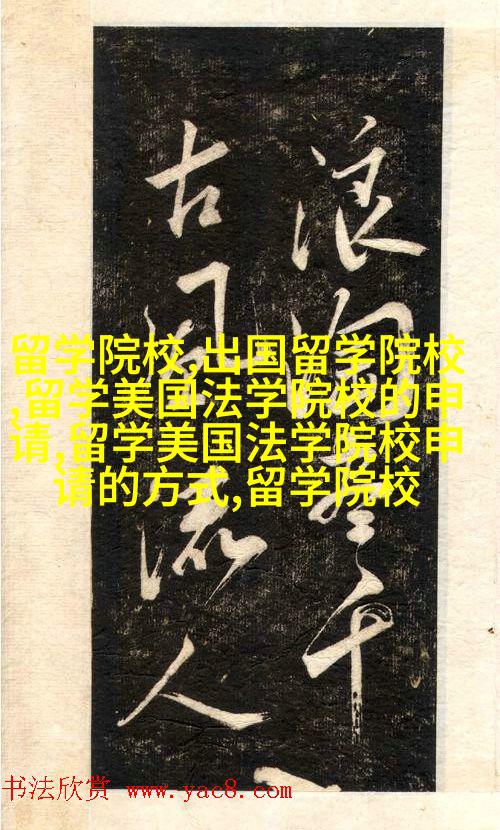 浪淘盡千
古風流人
留学院校,出国留学院校
,留学美国法学院校的申
请,留学美国法学院校申
请的方式,留学院校
书法欣赏 www.yac8.com